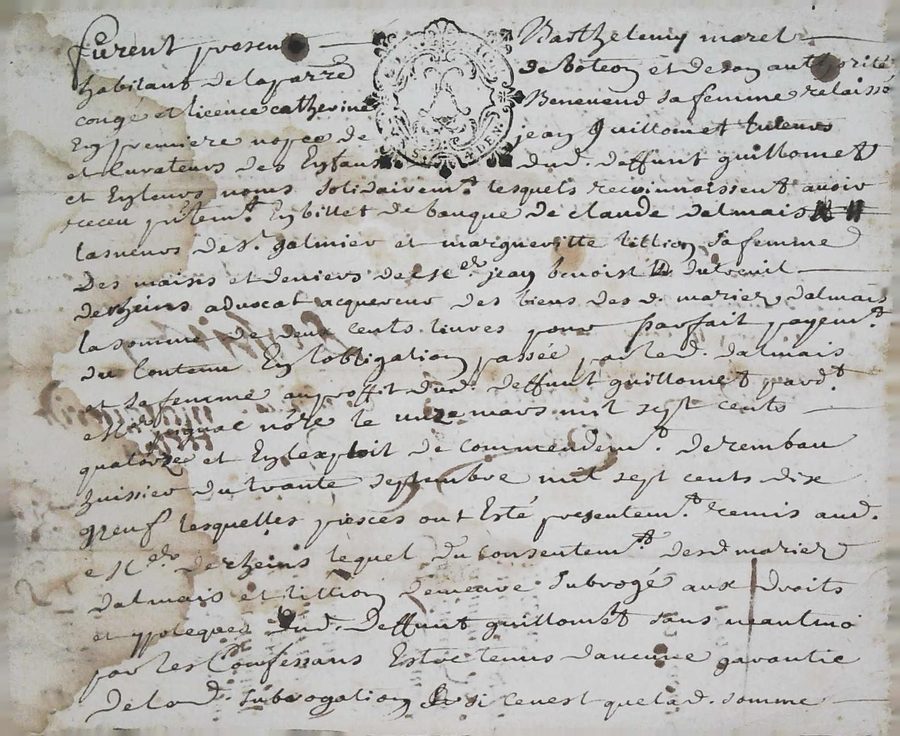 furent presens Barthelemy marel
habitant de laparre de boteon et de son authorité
congé et licence catherine Benevend sa femme relaissé
En premiere nopce de jean Guillomet tuteurs
et Curateurs des Enfans dud. deffunt guillomet
et En leurs noms solidairemt. lesquels reconnaissent avoir
receu pntemt. En billet de banque de claude dalmais
de st. galmier et margueritte tillion sa femme
Des mains et deniers de Me. jean benoist du treuil
derheins advocat acquereur des biens des d. mariez dalmais
la somme de deux cents livres pour parfait payemt.
du Contenu En lobligation passée par led. dalmais
et sa femme au proffit dud. deffunt guillomet pardt.
Me. nore le unze mars mil sept cents
quatorze et En lexploit de commendemt. de rembau
huissier du trante septembre mil sept cents dix
neuf lesquelles pieces ont Esté presentemt. remis aud.
Me. derheins lequel du consentemt. desd. mariez
dalmais et tillion demeure subrogé aux droits
et ypoteques dud. Deffunt guillomet sans neantmo
par les Confessans Estre tenus daucune garantie
De lad. subrogation si ce nest que lad. somme